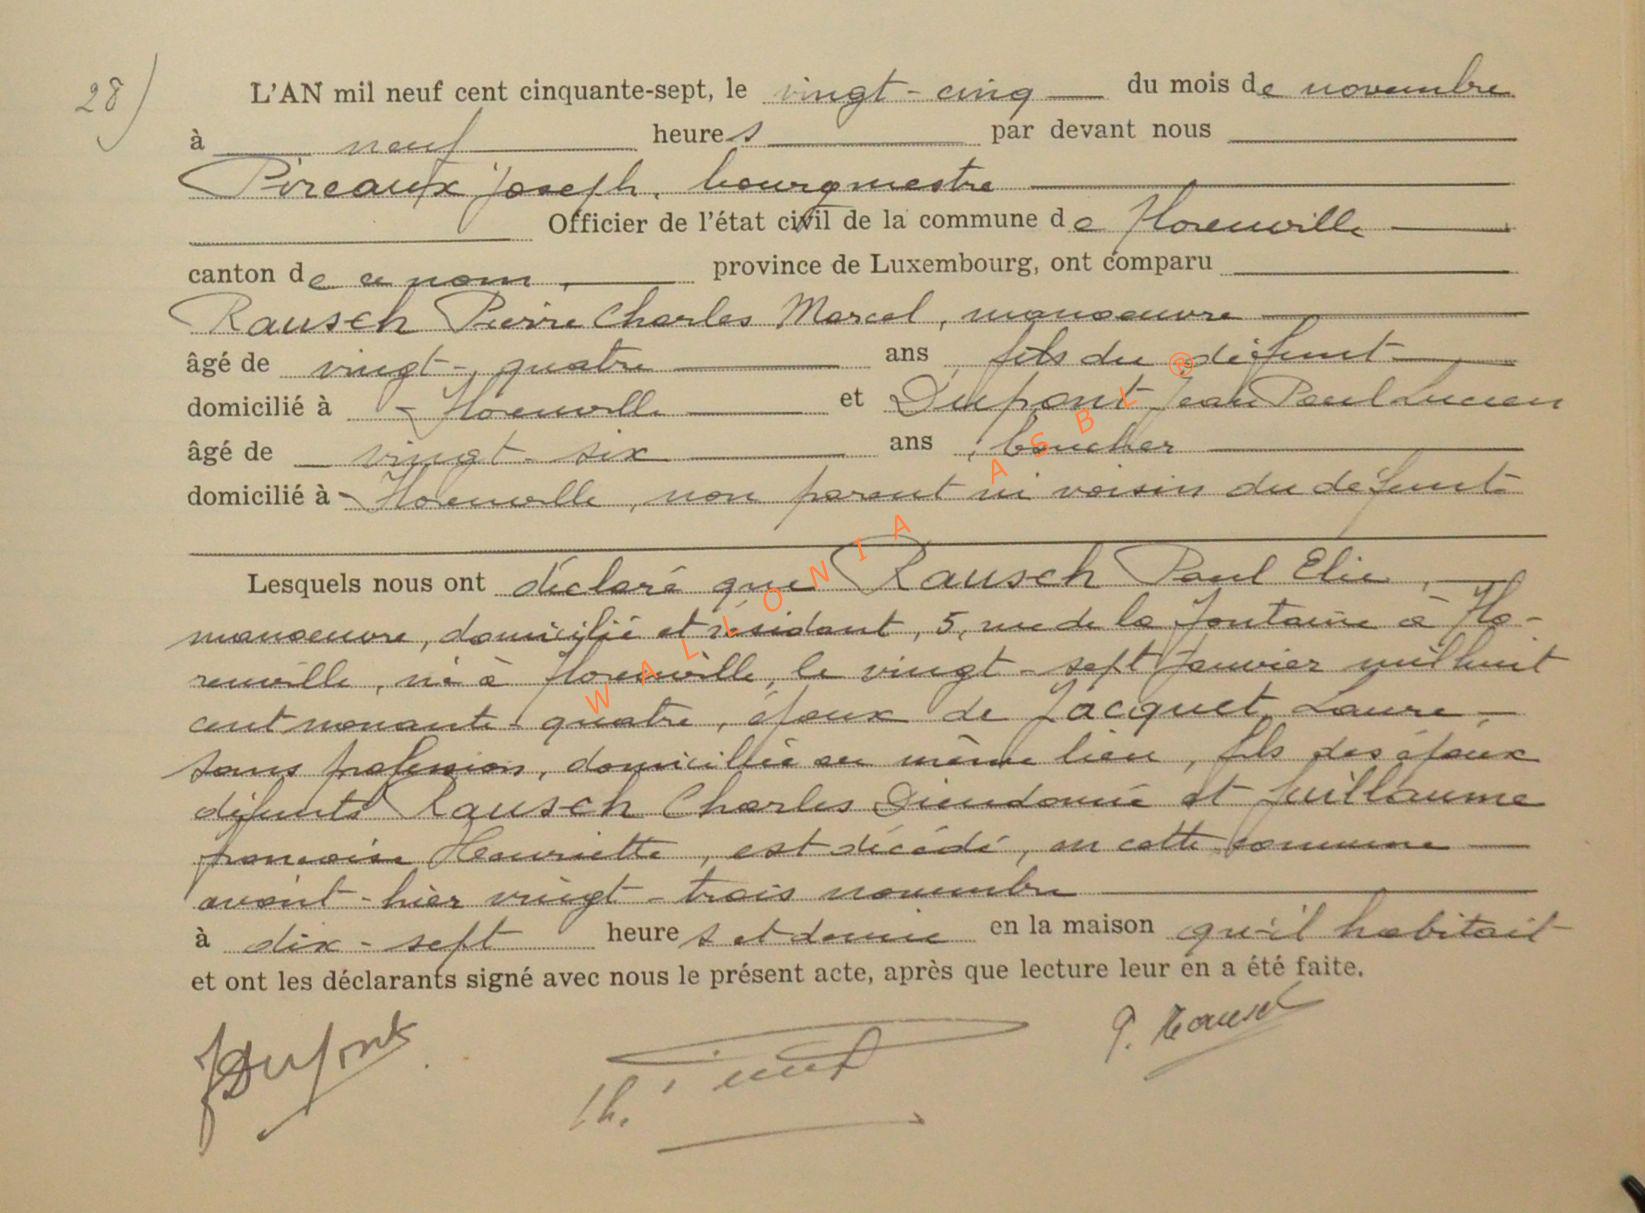 28)
L'AN mil neuf cent cinquante-sept, le vingt-cinq du mois de novembre
à neuf heures par devant nous
Pireaux Joseph, bourgmestre
Officier de l'état civil de la commune de Florenville
canton de ce nom, province de Luxembourg, ont comparu
Rausch Pierre Charles Marcel, manoeuvre
âgé de vingt-quatre ans, fils du défunt
domicilié à Florenville et Dupont Jean Paul Lucien
âgé de vingt-six ans, boucher
domicilié à Florenville, non parent ni voisin du défunt
Lesquels nous ont déclaré que Rausch Paul Elie,
manoeuvre, domicilié et résidant, 5, rue de la Fontaine à Flo-
renville, né à Florenville, le vingt-sept janvier mil huit
cent nonante-quatre, époux de Jacquet Laure,
sans profession, domiciliée au même lieu, fils des époux
défunts Rausch Charles Dieudonné et Guillaume
Françoise Henriette, est décédé, en cette commune
avant-hier vingt-trois novembre
à dix-sept heures et demie en la maison qu'il habitait
et ont les déclarants signé avec nous le présent acte, après que lecture leur en a été faite.
JDupont
P. Rausch
WALLONIA ASBL ®